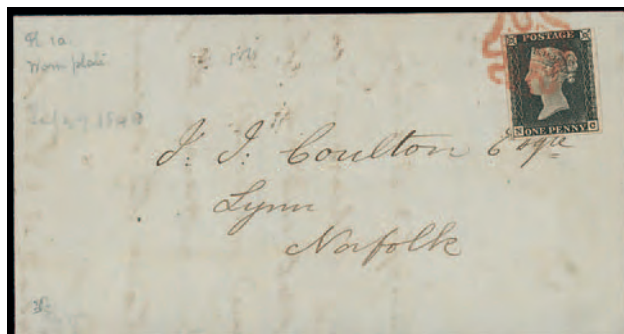 Pl. 1a.
Worn plate
1840
POSTAGE
N ONE PENNY C
J: J: Coulton Esqre
Lynn
Norfolk